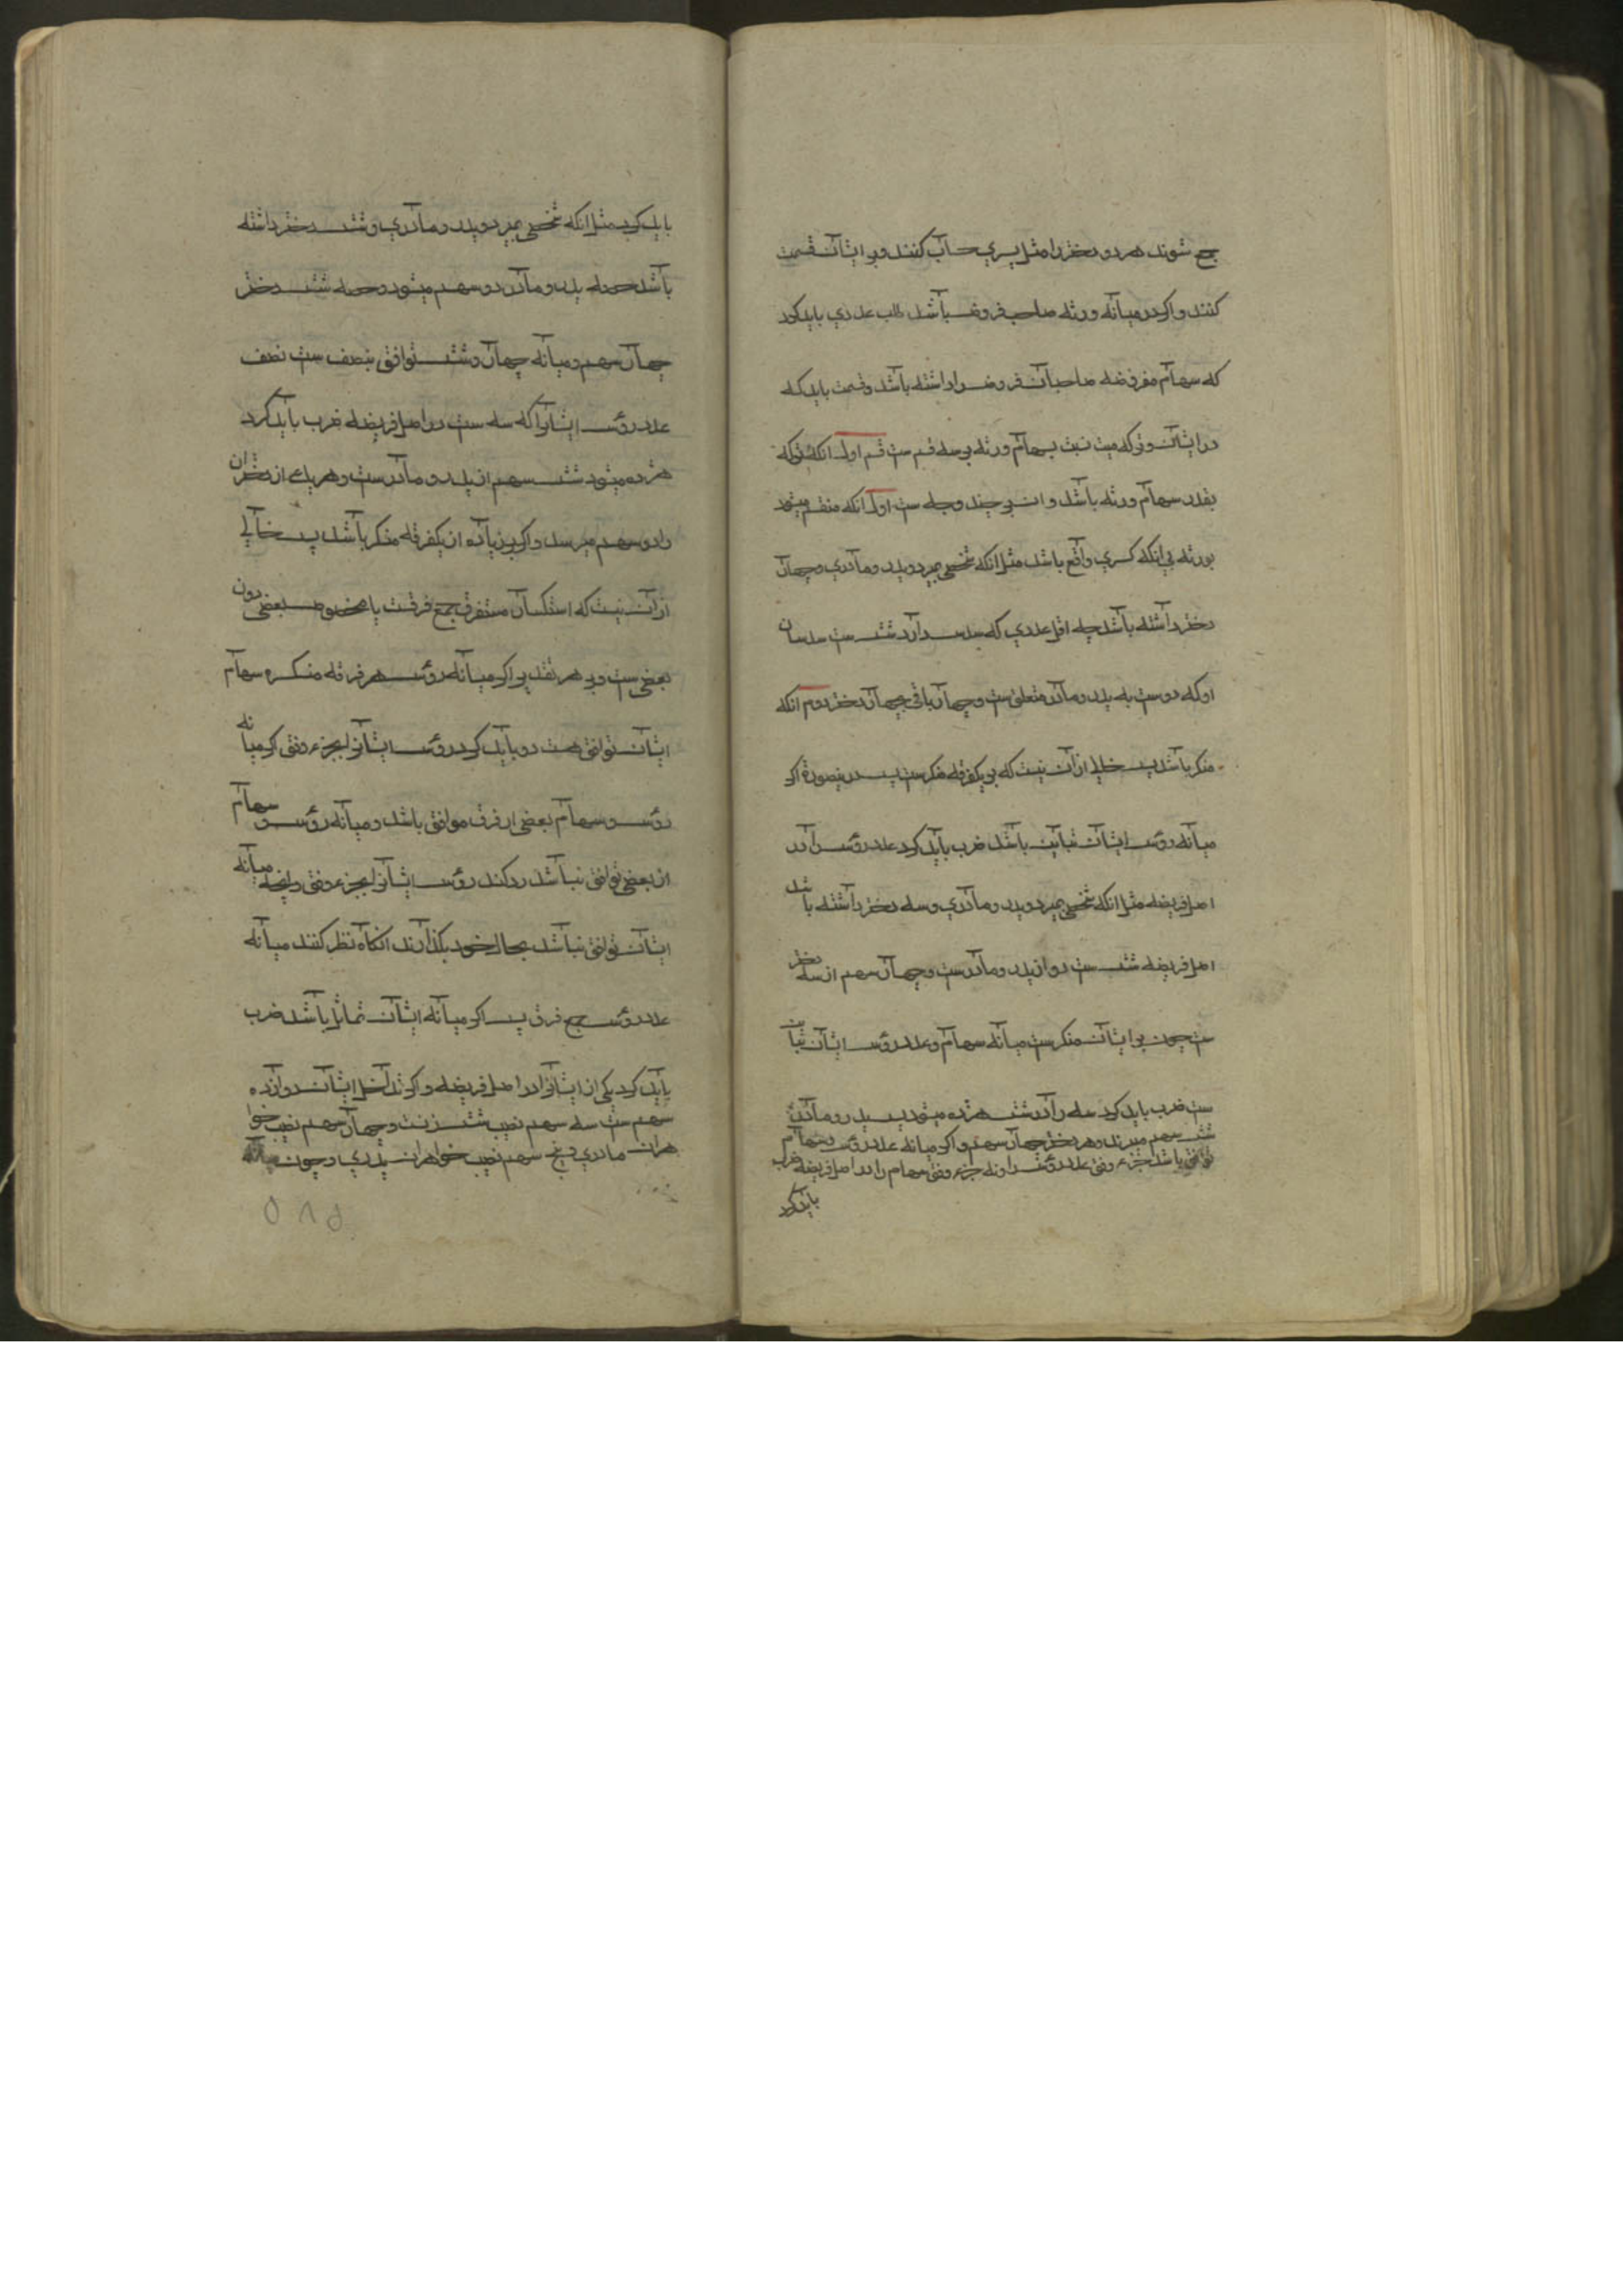 جمع شوند هر دو دختر را مثل پسري حساب كنند و بر ايشان قسمت
كنند و اكر در ميانه ورثه صاحب فروض باشد طلب عددي بايد كرد
كه سهام مفروضه صاحبان فروض را داشته باشد و قسمت بايد كه
در ايشان و تركه ميت نسبت بسهام ورثه بر سه قسم ست قسم اول انكه تركه
بقدر سهام ورثه باشد و ان بر چند وجه ست اول انكه منقسم ميشود
بورثه بي انكه كسري واقع باشد مثل انكه شخصي بميرد و پدر و مادري و چهار
دختر داشته باشد چه اقل عددي كه سدس دارد شش ست سدسان
او كه دوست به پدر و مادر متعلق ست و چهار باقي بچهار دختر دوم انكه
منكسر باشد پس خالي از آن نيست كه بر يكفرقه منكسرست پس درينصورة اكر
ميانه رؤس ايشان تباين باشد ضرب بايد كرد عدد رؤس را در
اصل فريضه مثل انكه شخصي بميرد و پدر و مادري و سه دختر داشته باشد
اصل فريضه شش ست دو از پدر و مادرست و چهار سهم از سه دختر
ست چون بر ايشان منكسرست ميانه سهام و عدد رؤس ايشان تباين
ست ضرب بايد كرد سه را در شش هژده ميشود پس پدر و مادر
شش سهم ميبرند و هر دختر چهار سهم و اكر ميانه عدد رؤس و سهام
توافق باشد جزء وفق عدد رؤس را و نه جزء وفق سهام را در اصل فريضه ضرب
بايد كرد
بايد كرد مثل انكه شخصي بميرد و پدر و مادري و شش دختر داشته
باشد حصه پدر و مادر دو سهم ميشود و حصه شش دختر
چهار سهم و ميانه چهار و شش توافق بنصف ست نصف
عدد رؤس ايشانرا كه سه ست در اصل فريضه ضرب بايد كرد
هژده ميشود شش سهم از پدر و مادرست و هر يك از دختران
را دو سهم ميرسد و اكر بر زياده از يكفرقه منكسر باشد پس خالي
از آن نيست كه استكسار مستغرق جمع فرقست يا مخصوص بعضي دون
بعضي ست و بر هر تقدير اكر ميانه رؤس هر فرقه منكسره و سهام
ايشان توافق هست رد بايد كرد رؤس ايشانرا بجزء وفق اكر ميانه
رؤس و سهام بعضي از فرق موافق باشد و ميانه رؤس و سهام
از بعضي توافق نباشد رد كنند رؤس ايشانرا بجزء وفق و انچه ميانه
ايشان توافق نباشد بحال خود بگذارند انكاه نظر كنند ميانه
عدد رؤس جمع فرق پس اكر ميانه ايشان تماثل باشد ضرب
بايد كرد يكي از ايشانرا در اصل فريضه و اكر تداخل ايشان دوازده
سهم ست سه سهم نصيب شش زنست و چهار سهم نصيب خوا
هران مادري و پنج سهم نصيب خواهران پدري و چون ميانه